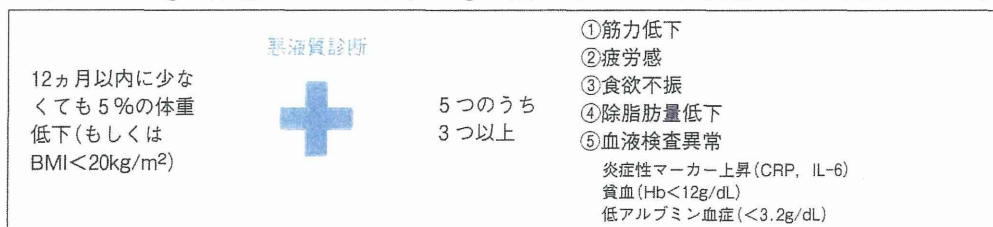 悪液質診断
12ヵ月以内に少な
くても5%の体重
低下(もしくは
BMI<20kg/m²)
5つのうち
3つ以上
①筋力低下
②疲労感
③食欲不振
④除脂肪量低下
⑤血液検査異常
炎症性マーカー上昇(CRP, IL-6)
貧血(Hb<12g/dL)
低アルブミン血症(<3.2g/dL)